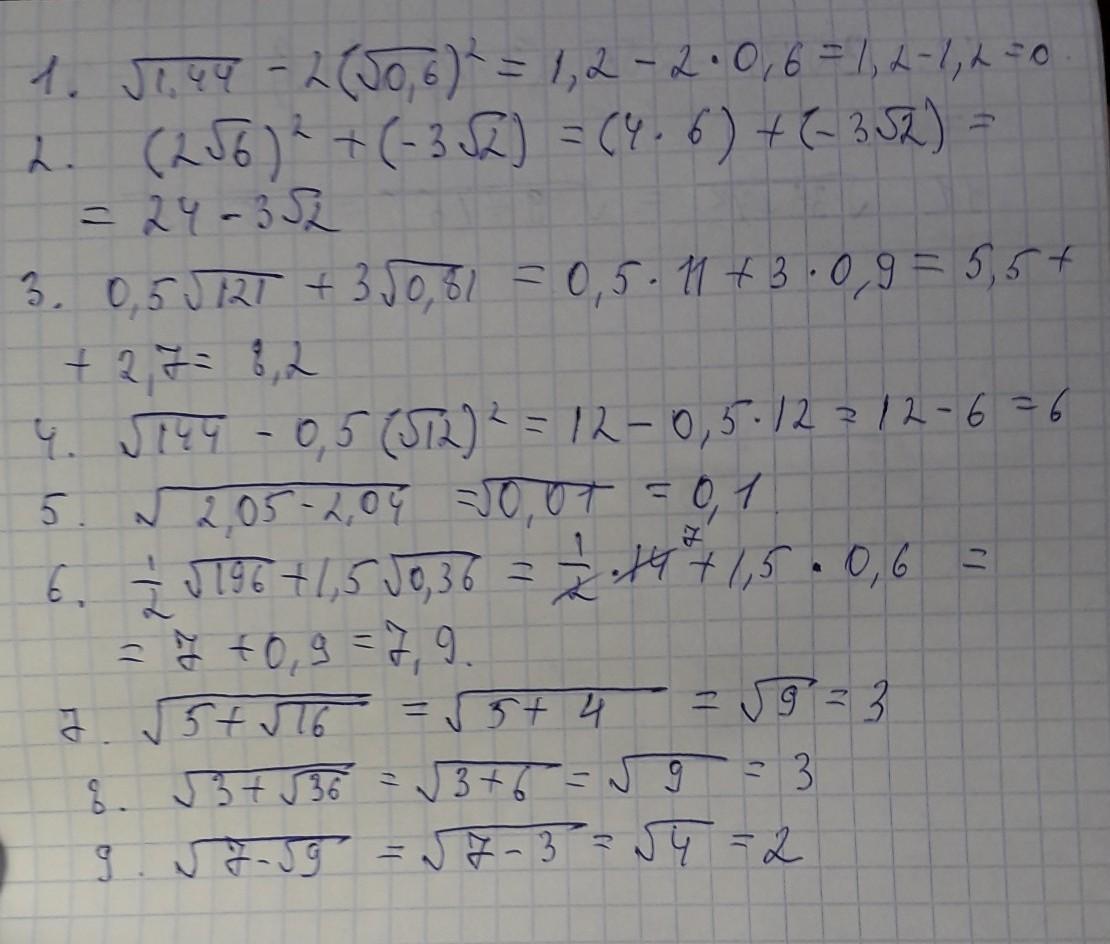 1. √1,44 - 2(√0,6)² = 1,2 - 2·0,6 = 1,2-1,2 = 0.
2. (2√6)² + (-3√2) = (4·6) + (-3√2) =
= 24 - 3√2
3. 0,5√121 + 3√0,81 = 0,5·11 + 3·0,9 = 5,5 +
+ 2,7 = 8,2
4. √144 - 0,5(√12)² = 12 - 0,5·12 = 12 - 6 = 6
5. √2,05-2,04 = √0,01 = 0,1
6. 1/2 √196 + 1,5√0,36 = 1/2 · 14 7 + 1,5 · 0,6 =
= 7 + 0,9 = 7,9.
7. √5+√16 = √5+4 = √9 = 3
8. √3+√36 = √3+6 = √9 = 3
9. √7-√9 = √7-3 = √4 = 2